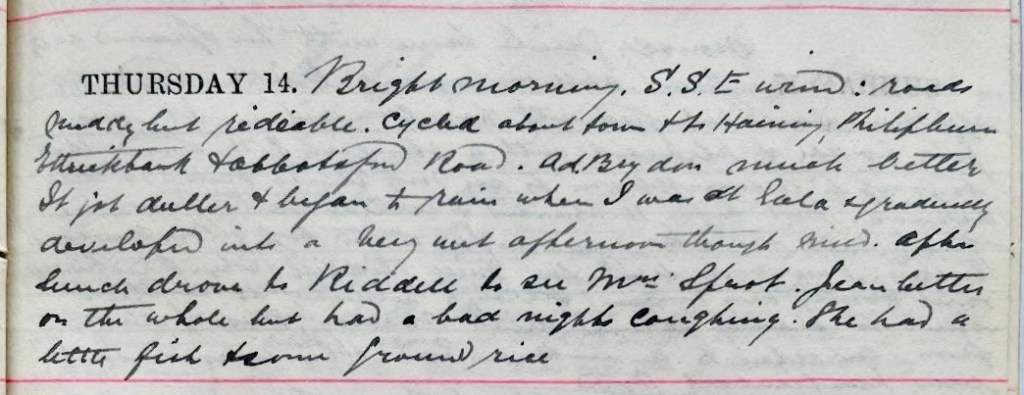 THURSDAY 14. Bright morning. S.S.E wind: roads
muddy but rideable. Cycled about town & to Haining Philipburn
Ettrickbank & Abbotsford Road. Ad Brydon much better
It got duller & began to rain when I was at Gala & gradually
developed into a very wet afternoon though mild. After
lunch drove to Riddell to see Mrs Sprot. Jean better
on the whole but had a bad nights coughing. She had a
little fish & some ground rice